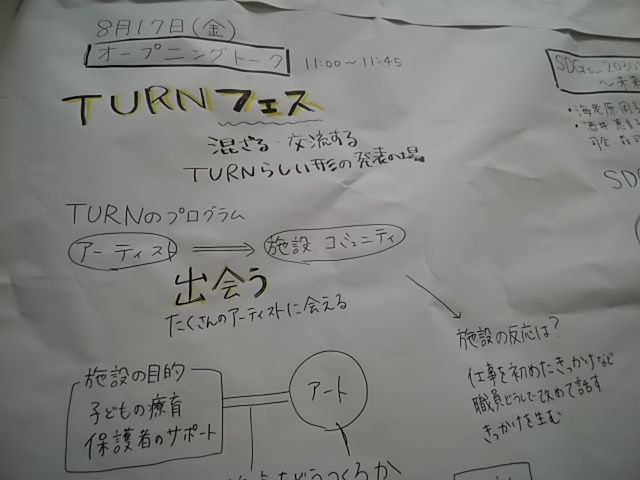 8月17日(金)
オープニングトーク 11:00～11:45
TURNフェス
混ざる・交流する
TURNらしい形の発表の場
TURNのプログラム
アーティスト ⟹ 施設、コミュニティ
出会う
たくさんのアーティストに会える
施設の反応は?
仕事を初めたきっかけなど
職員どうしで改めて話す
きっかけを生む
施設の目的
子どもの療育
保護者のサポート
アート
をどうつくるか
SDGs_2030
～未来
・海老原周子
・酒井
司会
SD